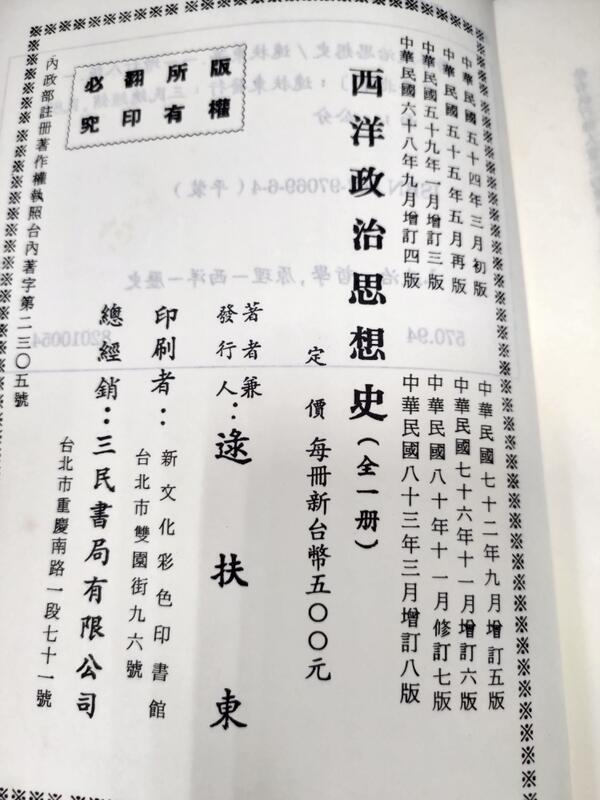 中華民國五十四年三月初版
中華民國五十五年五月再版
中華民國五十九年一月增訂三版
中華民國六十八年九月增訂四版
中華民國七十二年九月增訂五版
中華民國七十六年十一月增訂六版
中華民國八十年十一月修訂七版
中華民國八十三年三月增訂八版
西洋政治思想史(全一册)
定價 每冊新台幣五○○元
著者兼
發行人：逯扶東
印刷者：新文化彩色印書館
台北市雙園街九六號
總經銷：三民書局有限公司
台北市重慶南路一段七十一號
版權
所有
翻印
必究
內政部註冊著作權執照台內著字第二三○五號